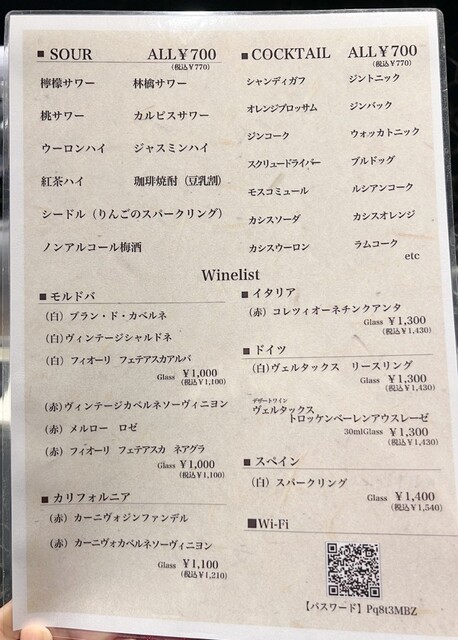 ■ SOUR ALL￥700
(税込￥770)
檸檬サワー 林檎サワー
桃サワー カルピスサワー
ウーロンハイ ジャスミンハイ
紅茶ハイ 珈琲焼酎（豆乳割）
シードル（りんごのスパークリング）
ノンアルコール梅酒
■ COCKTAIL ALL￥700
(税込￥770)
シャンディガフ ジントニック
オレンジブロッサム ジンバック
ジンコーク ウォッカトニック
スクリュードライバー ブルドッグ
モスコミュール ルシアンコーク
カシスソーダ カシスオレンジ
カシスウーロン ラムコーク
etc
Winelist
■ モルドバ
（白）ブラン・ド・カベルネ
（白）ヴィンテージシャルドネ
（白）フィオーリ フェテアスカアルバ
Glass ￥1,000
(税込￥1,100)
（赤）ヴィンテージカベルネソーヴィニヨン
（赤）メルロー ロゼ
（赤）フィオーリ フェテアスカ ネアグラ
Glass ￥1,000
(税込￥1,100)
■ カリフォルニア
（赤）カーニヴォジンファンデル
（赤）カーニヴォカベルネソーヴィニヨン
Glass ￥1,100
(税込￥1,210)
■ イタリア
（赤）コレツィオーネチンクアンタ
Glass ￥1,300
(税込￥1,430)
■ ドイツ
（白）ヴェルタックス リースリング
Glass ￥1,300
(税込￥1,430)
デザートワイン
ヴェルタックス
トロッケンベーレンアウスレーゼ
30mlGlass ￥1,300
(税込￥1,430)
■ スペイン
（白）スパークリング
Glass ￥1,400
(税込￥1,540)
■Wi-Fi
【パスワード】Pq8t3MBZ